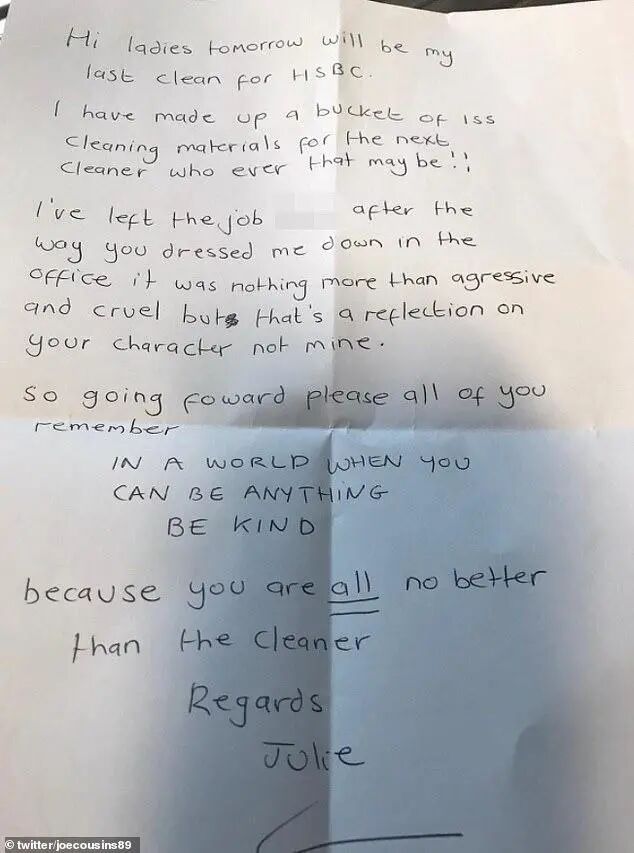 Hi ladies tomorrow will be my
last clean for HSBC.
I have made up a bucket of iss
cleaning materials for the next
cleaner who ever that may be!!
I've left the job after the
way you dressed me down in the
office it was nothing more than agressive
and cruel but that's a reflection on
your character not mine.
So going foward please all of you
remember
IN A WORLD WHEN YOU
CAN BE ANYTHING
BE KIND
because you are all no better
than the cleaner
Regards
Julie
© twitter/joecousins89